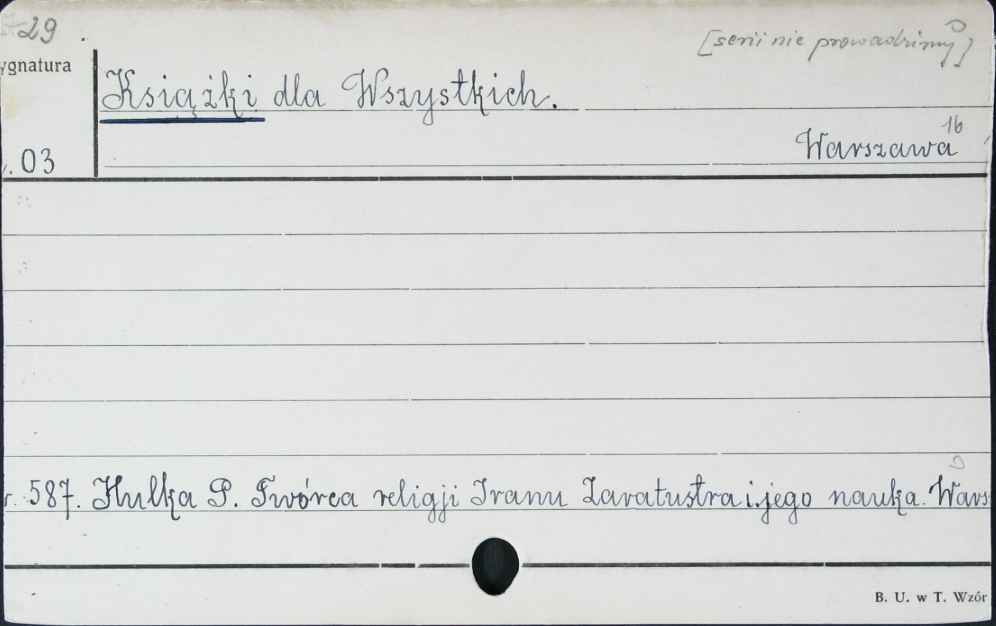 29.
[serii nie prowadzimy]
ygnatura
Książki dla Wszystkich.
16
. 03
Warszawa
r. 587. Hulka P. Twórca religji Iranu Zaratustra i jego nauka. Wars
B. U. w T. Wzór